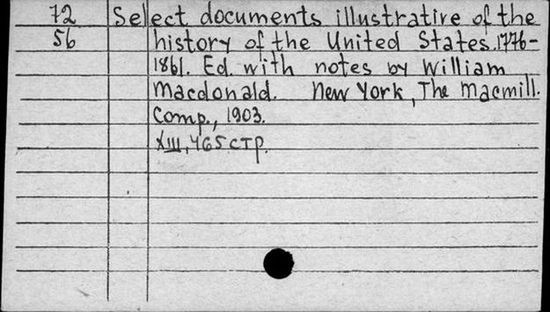 72 Select documents illustrative of the
56 history of the United States.1776-
1861. Ed. with notes by William
Macdonald. New York, The Macmill.
Comp., 1903.
XIII, 465 стр.